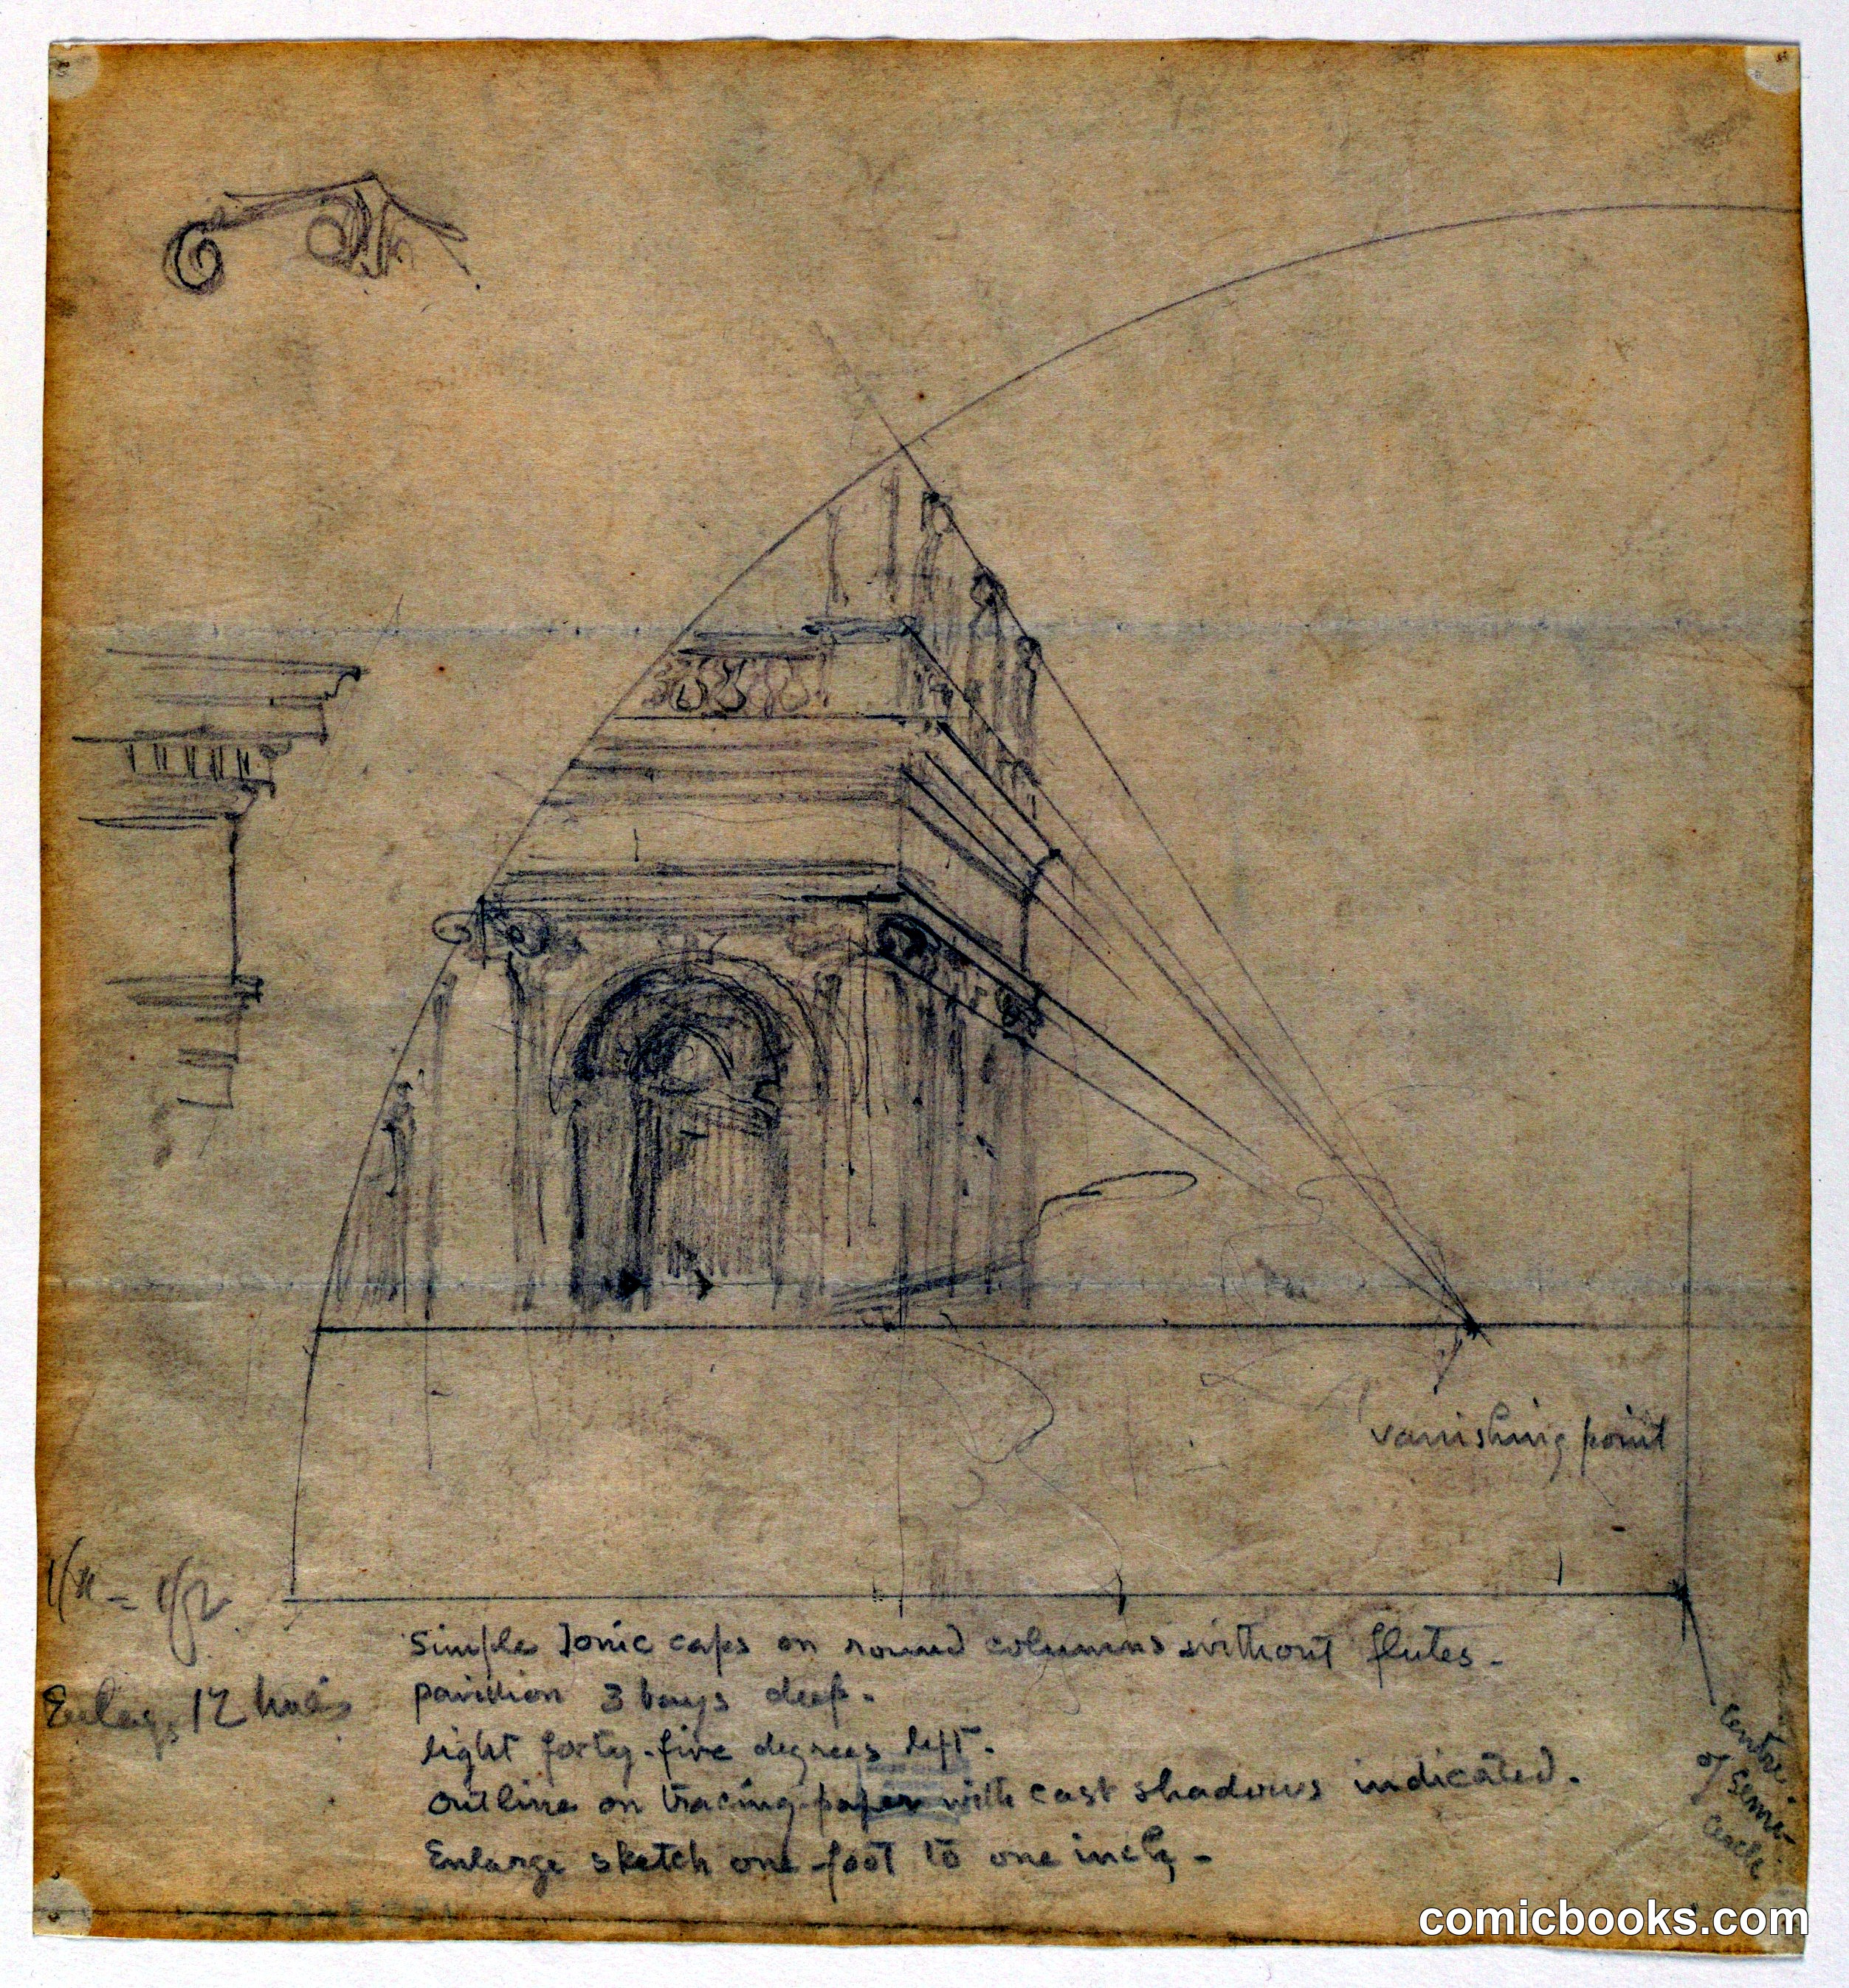 vanishing point
1/x = 1/12
Simple Ionic caps on round columns without flutes -
pavilion 3 bays deep.
light forty-five degrees left.
outline on tracing-paper with cast shadows indicated.
Enlarge sketch one-foot to one inch -
Enlarge 12
centre
of semi-
circle
comicbooks.com